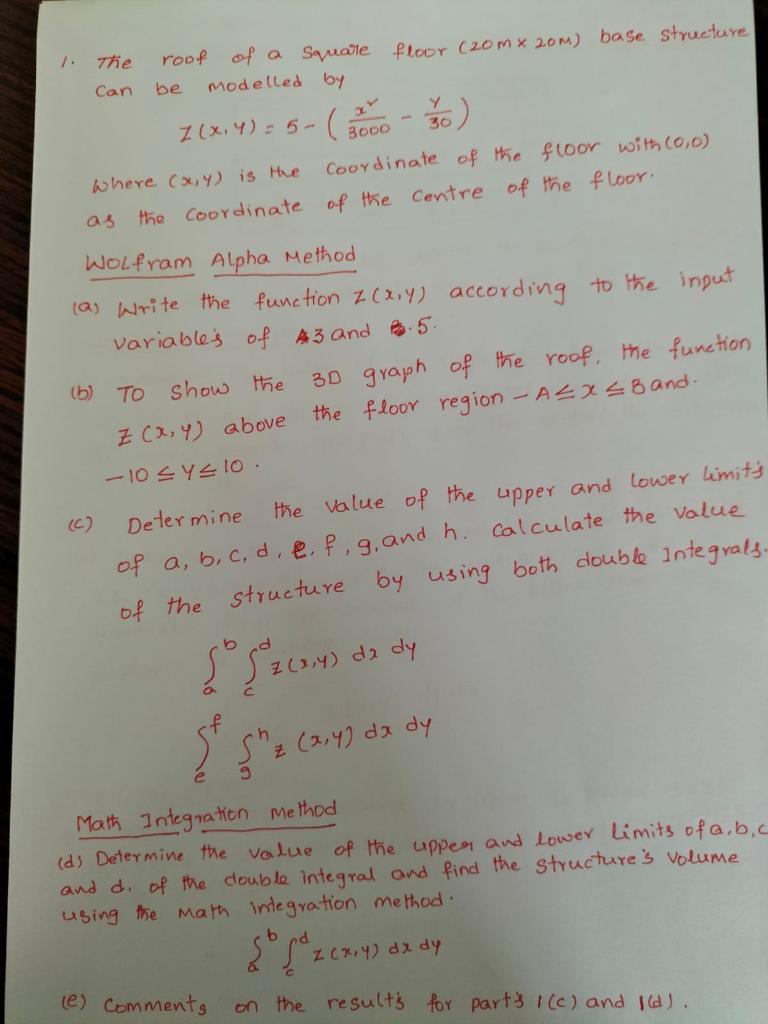 1. The roof of a Square floor (20m x 20m) base structure
Can be modelled by
Z(x,y) = 5 - ( x²/3000 - y/30 )
where (x,y) is the coordinate of the floor with (0,0)
as the coordinate of the centre of the floor.
Wolfram Alpha Method
(a) Write the function Z(x,y) according to the input
variable's of 3 and .5.
(b) To show the 3D graph of the roof, the function
Z(x,y) above the floor region - A ≤ x ≤ B and.
-10 ≤ y ≤ 10.
(c) Determine the value of the upper and lower limit's
of a, b, c, d, e, f, g, and h. calculate the value
of the structure by using both double Integrals.
∫ₐᵇ ∫꜀ᵈ z(x,y) dx dy
∫ₑᶠ ∫gʰ z (x,y) dx dy
Math Integration Method
(d) Determine the value of the upper and lower limits of a, b, c
and d. of the double integral and find the structure's volume
using the Math integration method.
∫ₐᵇ ∫꜀ᵈ z(x,y) dx dy
(e) Comments on the result's for part's 1(c) and 1(d).